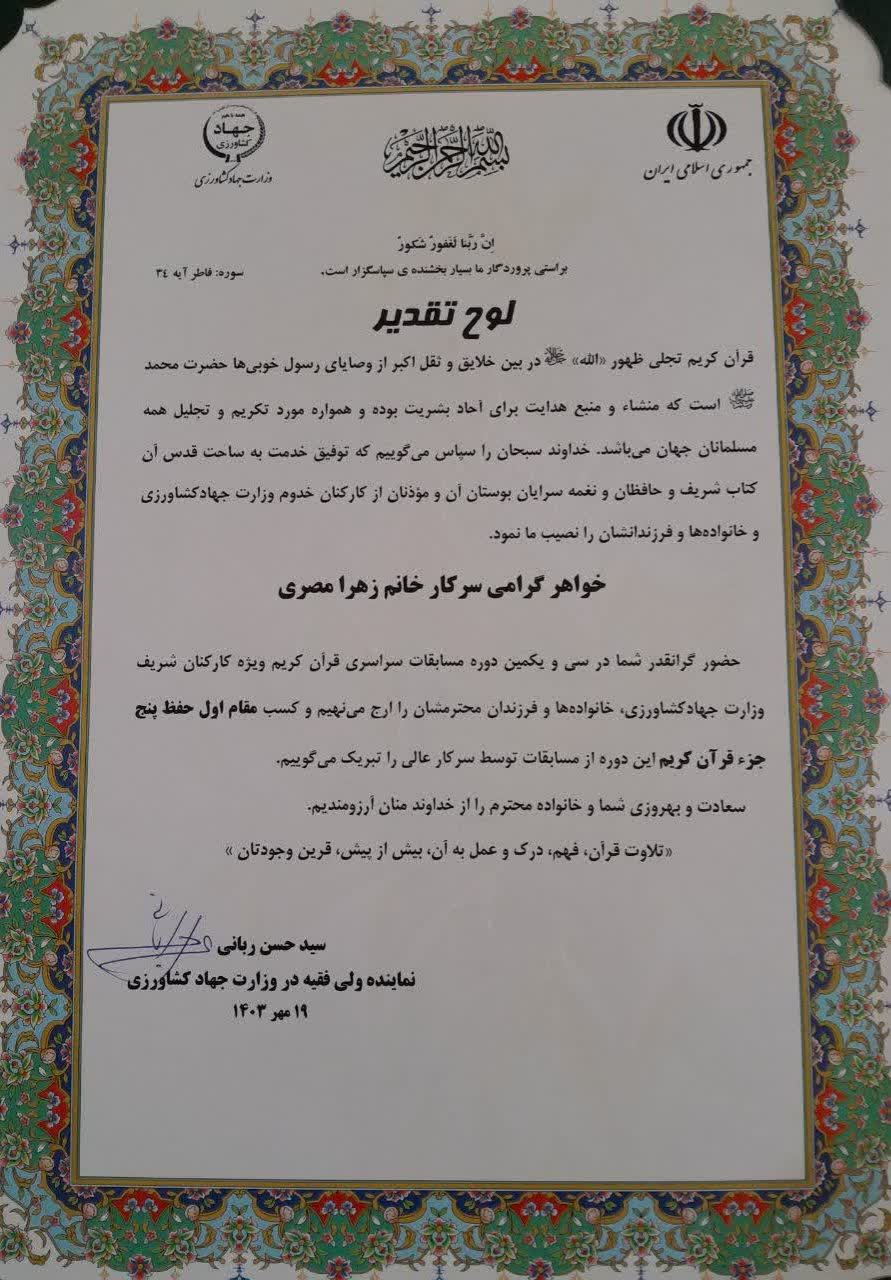 جمهوری اسلامی ایران
بسم الله الرحمن الرحیم
همه با هم
جهاد
کشاورزی
وزارت جهاد کشاورزی
اِنَّ رَبَّنا لَغَفورٌ شَکورٌ
براستی پروردگار ما بسیار بخشنده ی سپاسگزار است. سوره: فاطر آیه ٣٤
لوح تقدیر
قرآن کریم تجلی ظهور «الله» جل جلاله در بین خلایق و ثقل اکبر از وصایای رسول خوبی‌ها حضرت محمد
ﷺ است که منشاء و منبع هدایت برای آحاد بشریت بوده و همواره مورد تکریم و تجلیل همه
مسلمانان جهان می‌باشد. خداوند سبحان را سپاس می‌گوییم که توفیق خدمت به ساحت قدس آن
کتاب شریف و حافظان و نغمه سرایان بوستان آن و مؤذنان از کارکنان خدوم وزارت جهادکشاورزی
و خانواده‌ها و فرزندانشان را نصیب ما نمود.
خواهر گرامی سرکار خانم زهرا مصری
حضور گرانقدر شما در سی و یکمین دوره مسابقات سراسری قرآن کریم ویژه کارکنان شریف
وزارت جهادکشاورزی، خانواده‌ها و فرزندان محترمشان را ارج می‌نهیم و کسب مقام اول حفظ پنج
جزء قرآن کریم این دوره از مسابقات توسط سرکار عالی را تبریک می‌گوییم.
سعادت و بهروزی شما و خانواده محترم را از خداوند منان آرزومندیم.
«تلاوت قرآن، فهم، درک و عمل به آن، بیش از پیش، قرین وجودتان »
سید حسن ربانی
نماینده ولی فقیه در وزارت جهاد کشاورزی
۱۹ مهر ۱۴۰۳